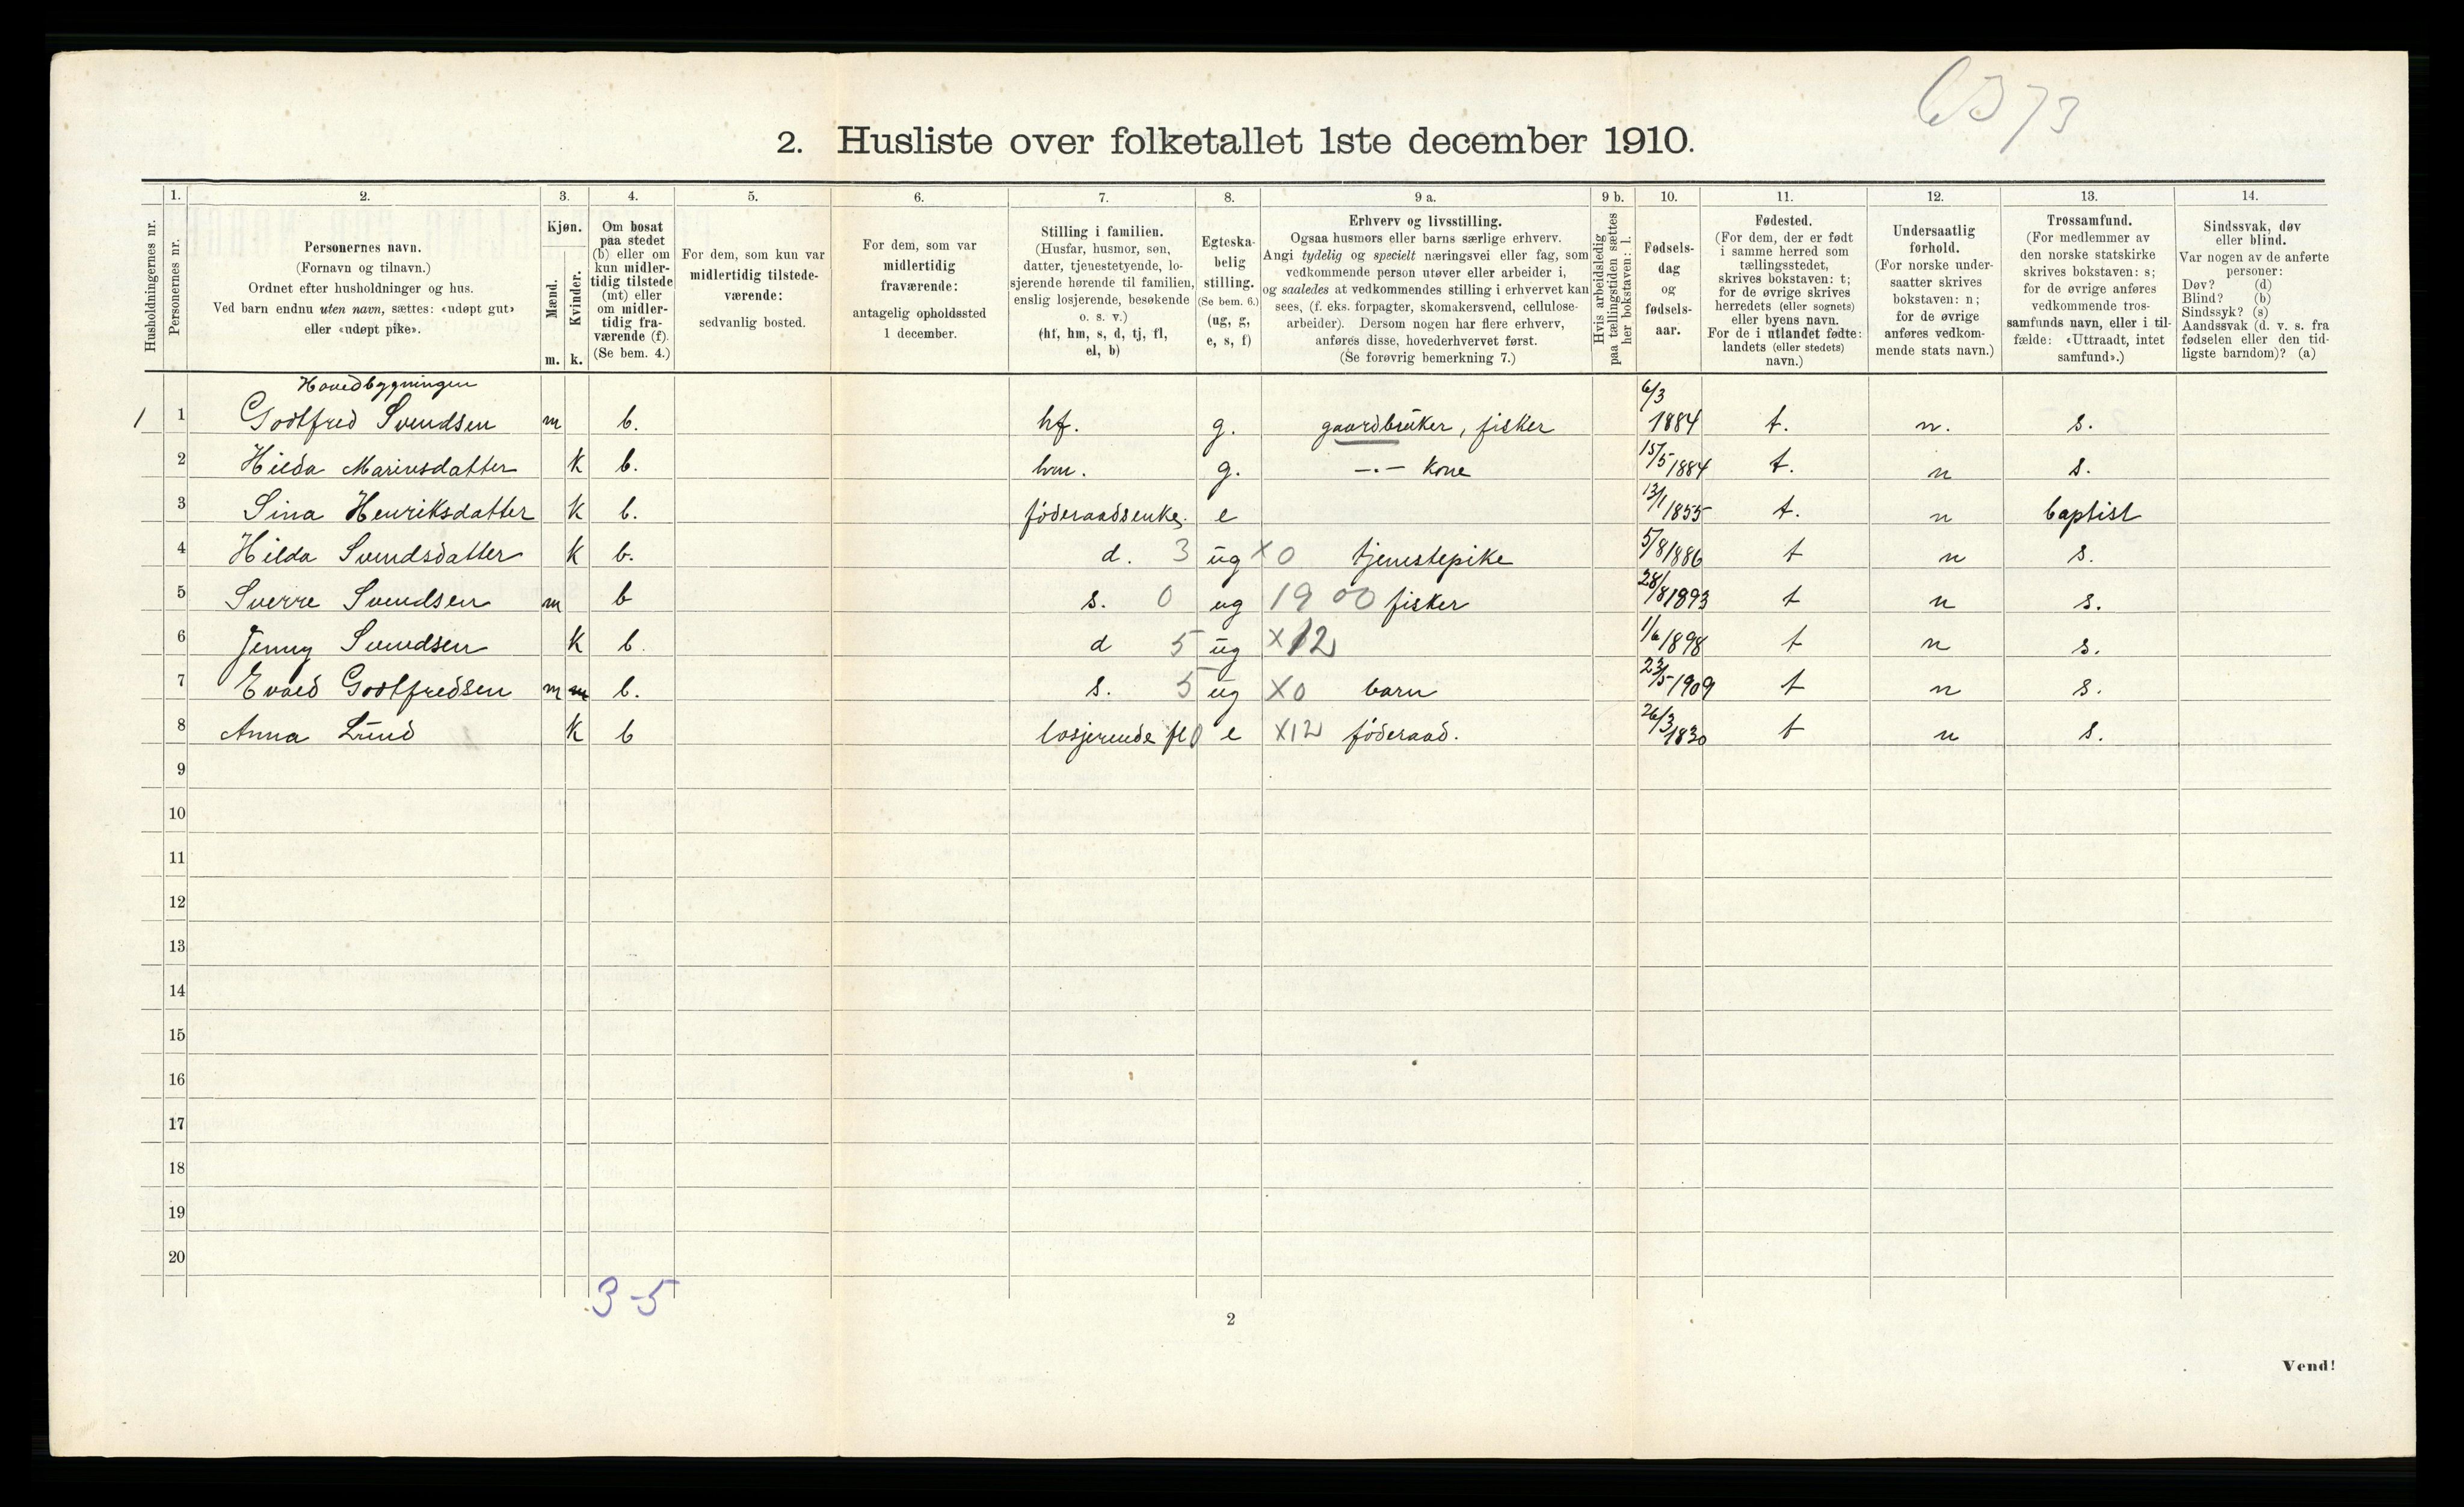 2. Husliste over folketallet 1ste december 1910.
1. 2. 3. 4. 5. 6. 7. 8. 9 a. 9 b. 10. 11. 12. 13. 14.
Husholdningernes nr.
Personernes nr.
Personernes navn.
(Fornavn og tilnavn.)
Ordnet efter husholdninger og hus.
Ved barn endnu uten navn, sættes: «udøpt gut»
eller «udøpt pike».
Kjøn.
Mænd.
Kvinder.
m. k.
Om bosat
paa stedet
(b) eller om
kun midler-
tidig tilstede
(mt) eller
om midler-
tidig fra-
værende (f).
(Se bem. 4.)
For dem, som kun var
midlertidig tilstede-
værende:
sedvanlig bosted.
For dem, som var
midlertidig
fraværende:
antagelig opholdssted
1 december.
Stilling i familien.
(Husfar, husmor, søn,
datter, tjenestetyende, lo-
sjerende hørende til familien,
enslig losjerende, besøkende
o. s. v.)
(hf, hm, s, d, tj, fl,
el, b)
Egteska-
belig
stilling.
(Se bem. 6.)
(ug, g,
e, s, f)
Erhverv og livsstilling.
Ogsaa husmors eller barns særlige erhverv.
Angi tydelig og specielt næringsvei eller fag, som
vedkommende person utøver eller arbeider i,
og saaledes at vedkommendes stilling i erhvervet kan
sees, (f. eks. forpagter, skomakersvend, cellulose-
arbeider). Dersom nogen har flere erhverv,
anføres disse, hovederhvervet først.
(Se forøvrig bemerkning 7.)
Hvis arbeidsledig
paa tællingstiden sættes
her bokstaven: l.
Fødsels-
dag
og
fødsels-
aar.
Fødested.
(For dem, der er født
i samme herred som
tællingsstedet,
skrives bokstaven: t;
for de øvrige skrives
herredets (eller sognets)
eller byens navn.
For de i utlandet fødte:
landets (eller stedets)
navn.)
Undersaatlig
forhold.
(For norske under-
saatter skrives
bokstaven: n;
for de øvrige
anføres vedkom-
mende stats navn.)
Trossamfund.
(For medlemmer av
den norske statskirke
skrives bokstaven: s;
for de øvrige anføres
vedkommende tros-
samfunds navn, eller i til-
fælde: «Uttraadt, intet
samfund».)
Sindssvak, døv
eller blind.
Var nogen av de anførte
personer:
Døv? (d)
Blind? (b)
Sindssyk? (s)
Aandssvak (d. v. s. fra
fødselen eller den tid-
ligste barndom)? (a)
Hovedbygningen
1 1 Godtfred Svendsen m b. hf. g. gaardbruker, fisker 6/3 1884 t. n. s.
2 Hilda Mariusdatter K b. hm. g. -.- Kone 15/5 1884 t. n s.
3 Sina Henriksdatter K b. føderaadsenke. e 13/1 1855 t. n baptist
4 Hilda Svendsdatter K b. d. 3 ug X 0 tjenestepike 5/8 1886 t n s.
5 Sverre Svendsen m b s. 0 ug 19 00 fisker 28/8 1893 t n s.
6 Jenny Svendsen K b. d 5 ug X 12 1/6 1898 t n s.
7 Evald Godtfredsen m m b. s. 5 ug X0 barn 23/5 1909 t n s.
8 Anna Lund K b losjerende fl 0 e X12 føderaad. 26/3 1830 t n s.
9
10
11
12
13
14
15
16
17
18
19
20
3-5
2
Vend!